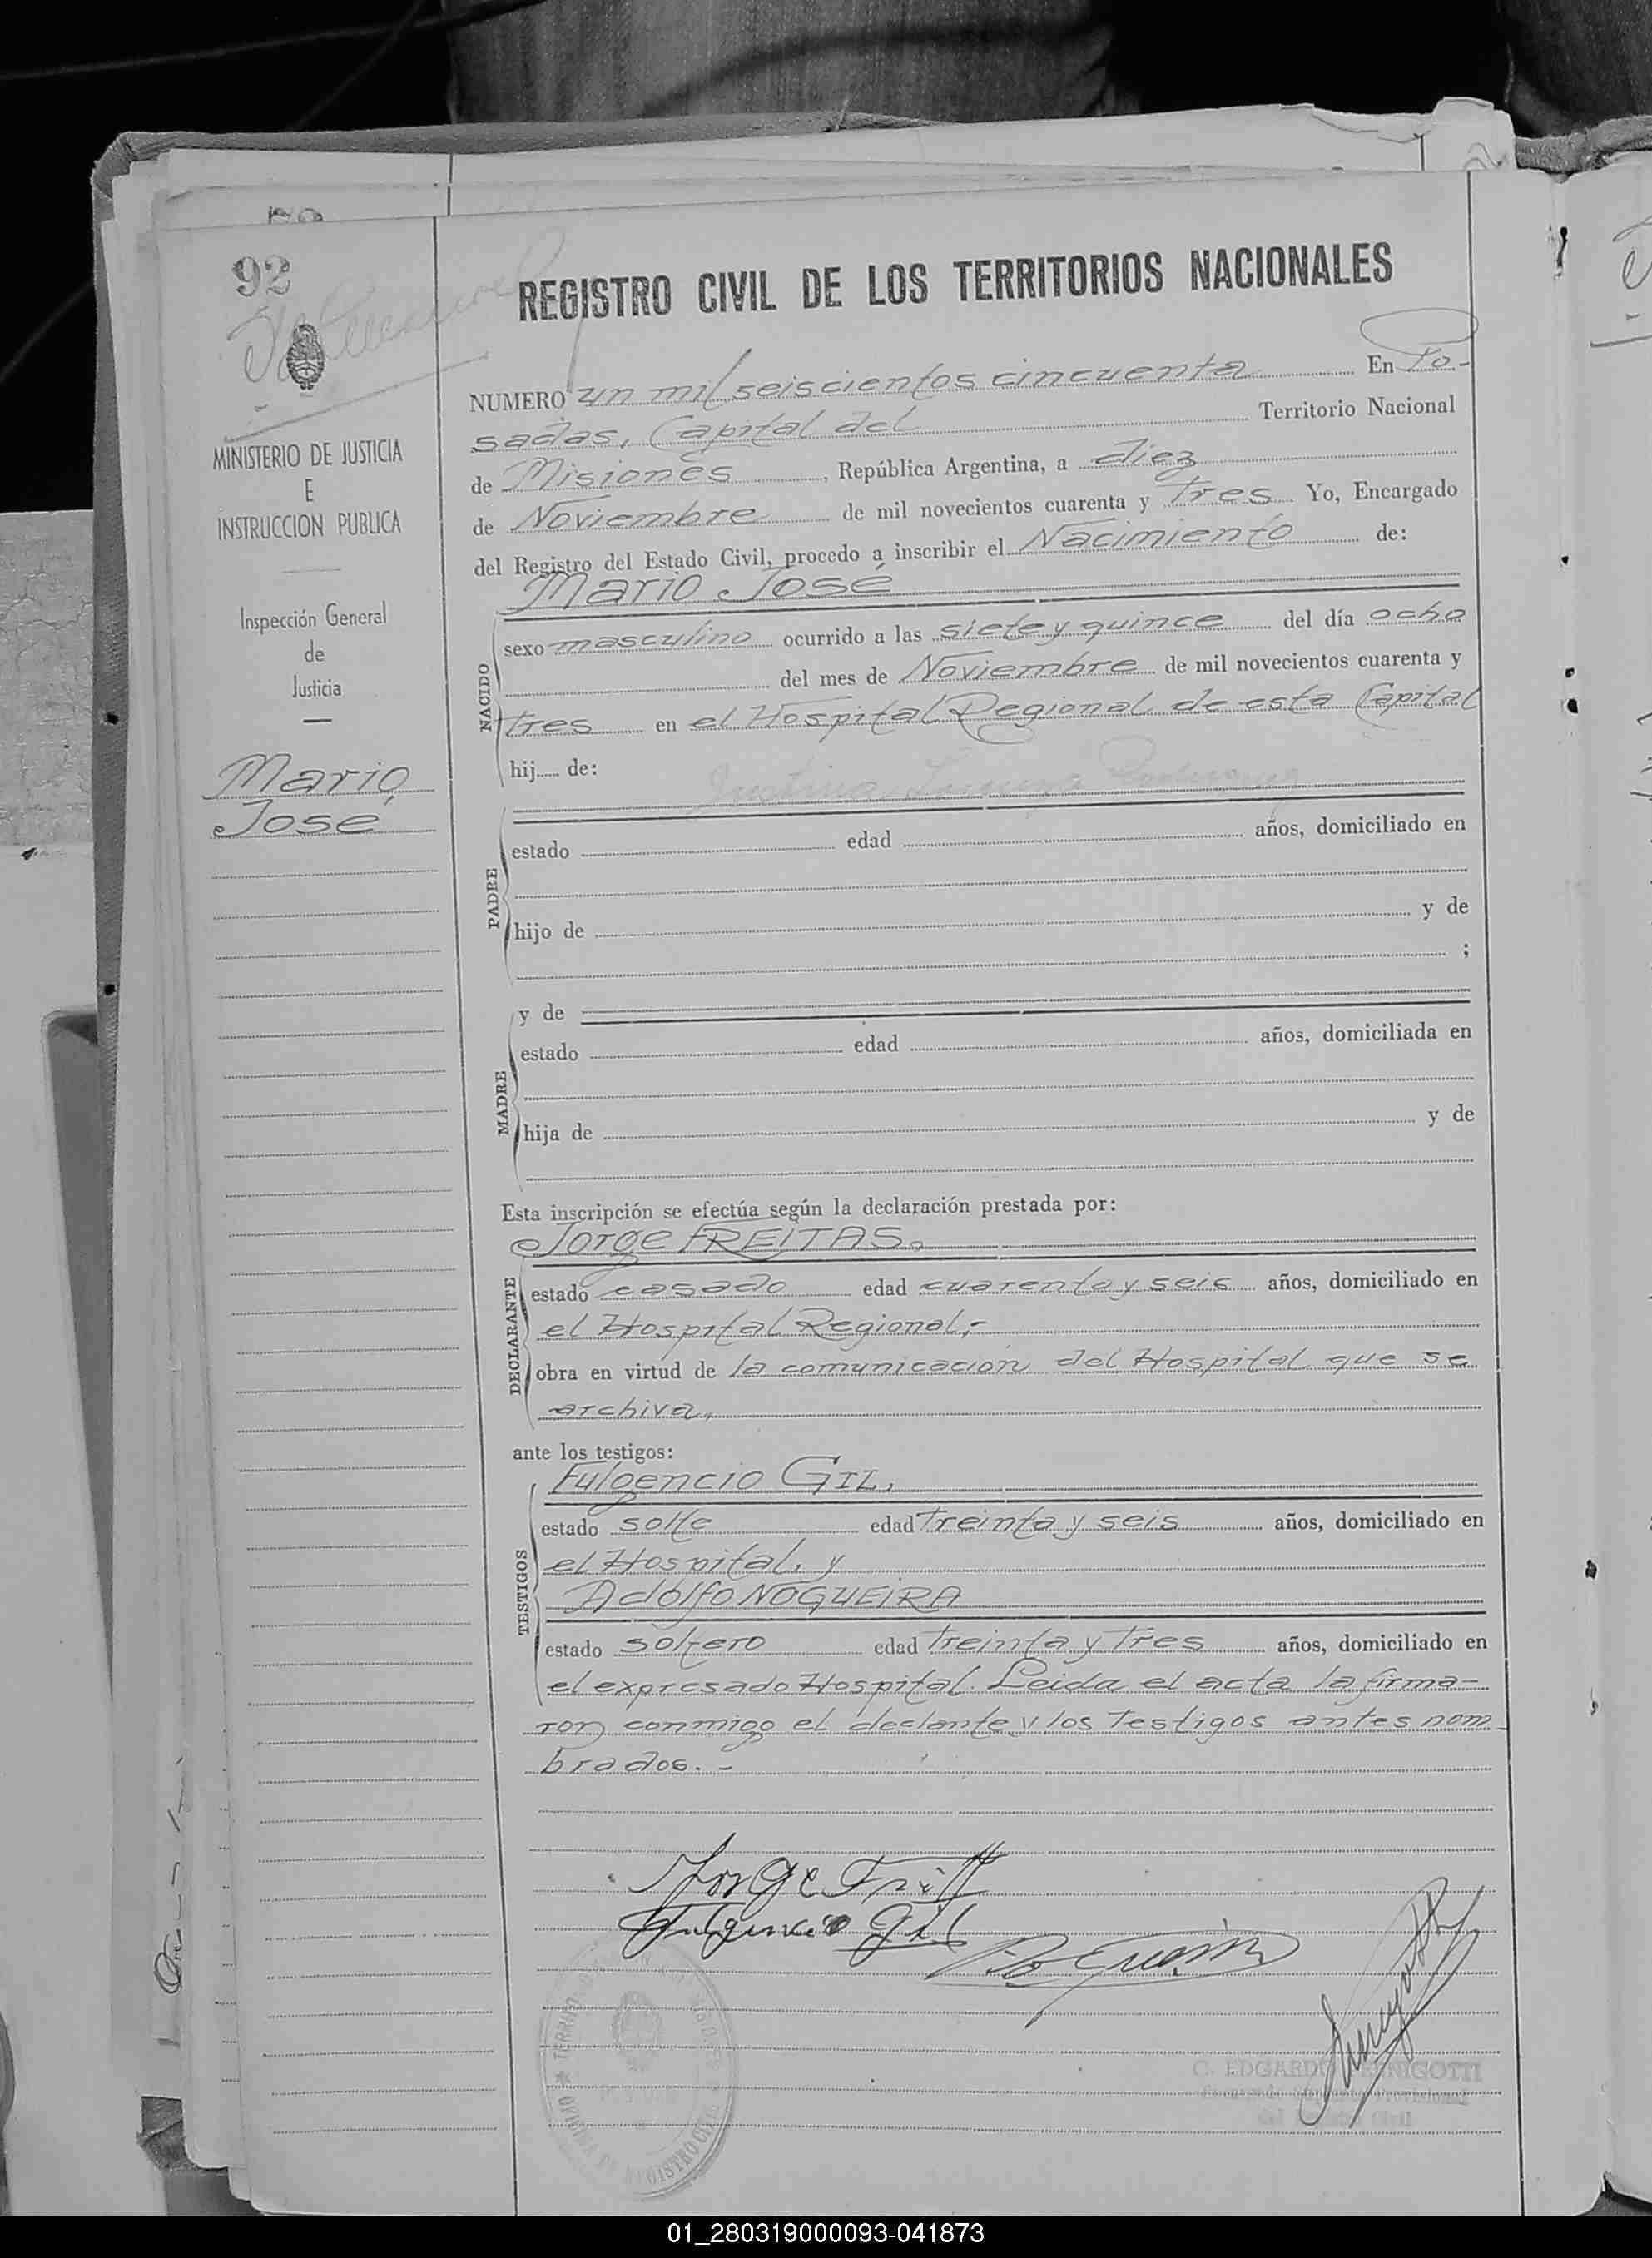 92
REGISTRO CIVIL DE LOS TERRITORIOS NACIONALES
MINISTERIO DE JUSTICIA
E
INSTRUCCION PUBLICA
Inspección General
de
Justicia
Mario
José
NUMERO un mil seiscientos cincuenta En Po-
sadas, Capital del Territorio Nacional
de Misiones, República Argentina, a diez
de Noviembre de mil novecientos cuarenta y tres Yo, Encargado
del Registro del Estado Civil, procedo a inscribir el Nacimiento de:
Mario José
NACIDO
sexo masculino ocurrido a las siete y quince del día ocho
del mes de Noviembre de mil novecientos cuarenta y
tres en el Hospital Regional de esta Capital
hij de:
PADRE
estado edad años, domiciliado en
hijo de y de
;
MADRE
y de
estado edad años, domiciliada en
hija de y de
Esta inscripción se efectúa según la declaración prestada por:
Jorge FREITAS.
DECLARANTE
estado casado edad cuarenta y seis años, domiciliado en
el Hospital Regional,-
obra en virtud de la comunicación del Hospital que se
archiva,
ante los testigos:
Fulgencio GIL,
TESTIGOS
estado solte edad treinta y seis años, domiciliado en
el Hospital, y
Adolfo NOGUEIRA
estado soltero edad treinta y tres años, domiciliado en
el expresado Hospital. Leida el acta la firma-
ron conmigo el declante y los testigos antes nom
brados.-
Jorge
Fulgencio Gil
C. EDGARDO
01_280319000093-041873